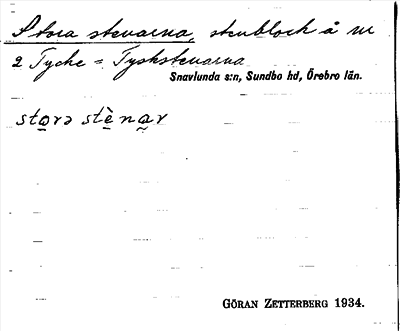 Stora stenarna, stenblock å nr
2 Tycke = Tyskstenarna
Snavlunda s:n, Sundbo hd, Örebro län.
sto̱rə stè̱na̰r
GÖRAN ZETTERBERG 1934.